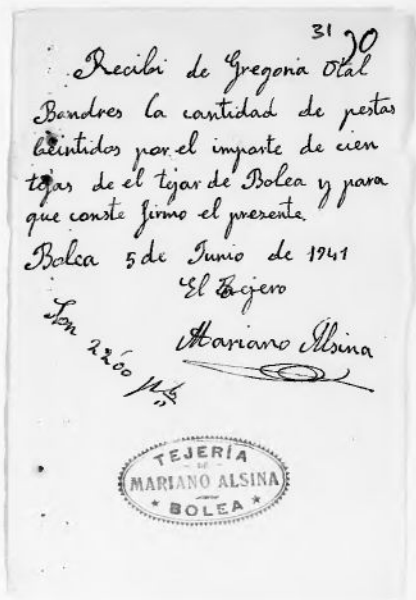 31 90
Recibi de Gregoria Otal
Bandres la cantidad de pestas
beintidos por el importe de cien
tejas de el tejar de Bolea y para
que conste firmo el presente.
Bolea 5 de Junio de 1941
El Tejero
Son 22'00 pts
Mariano Alsina
TEJERÍA
DE
MARIANO ALSINA
BOLEA